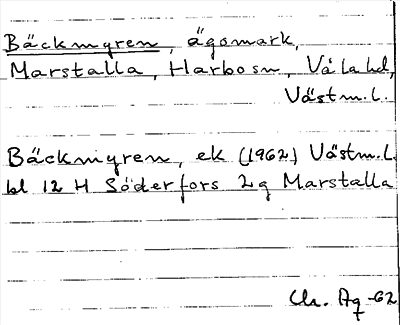 Bäckmyren, ägomark,
Marstalla, Harbosn, Våla hd,
Västm.l.
Bäckmyren, ek (1962) Västm.l.
bl 12 H Söderfors 2g Marstalla
Aq -62